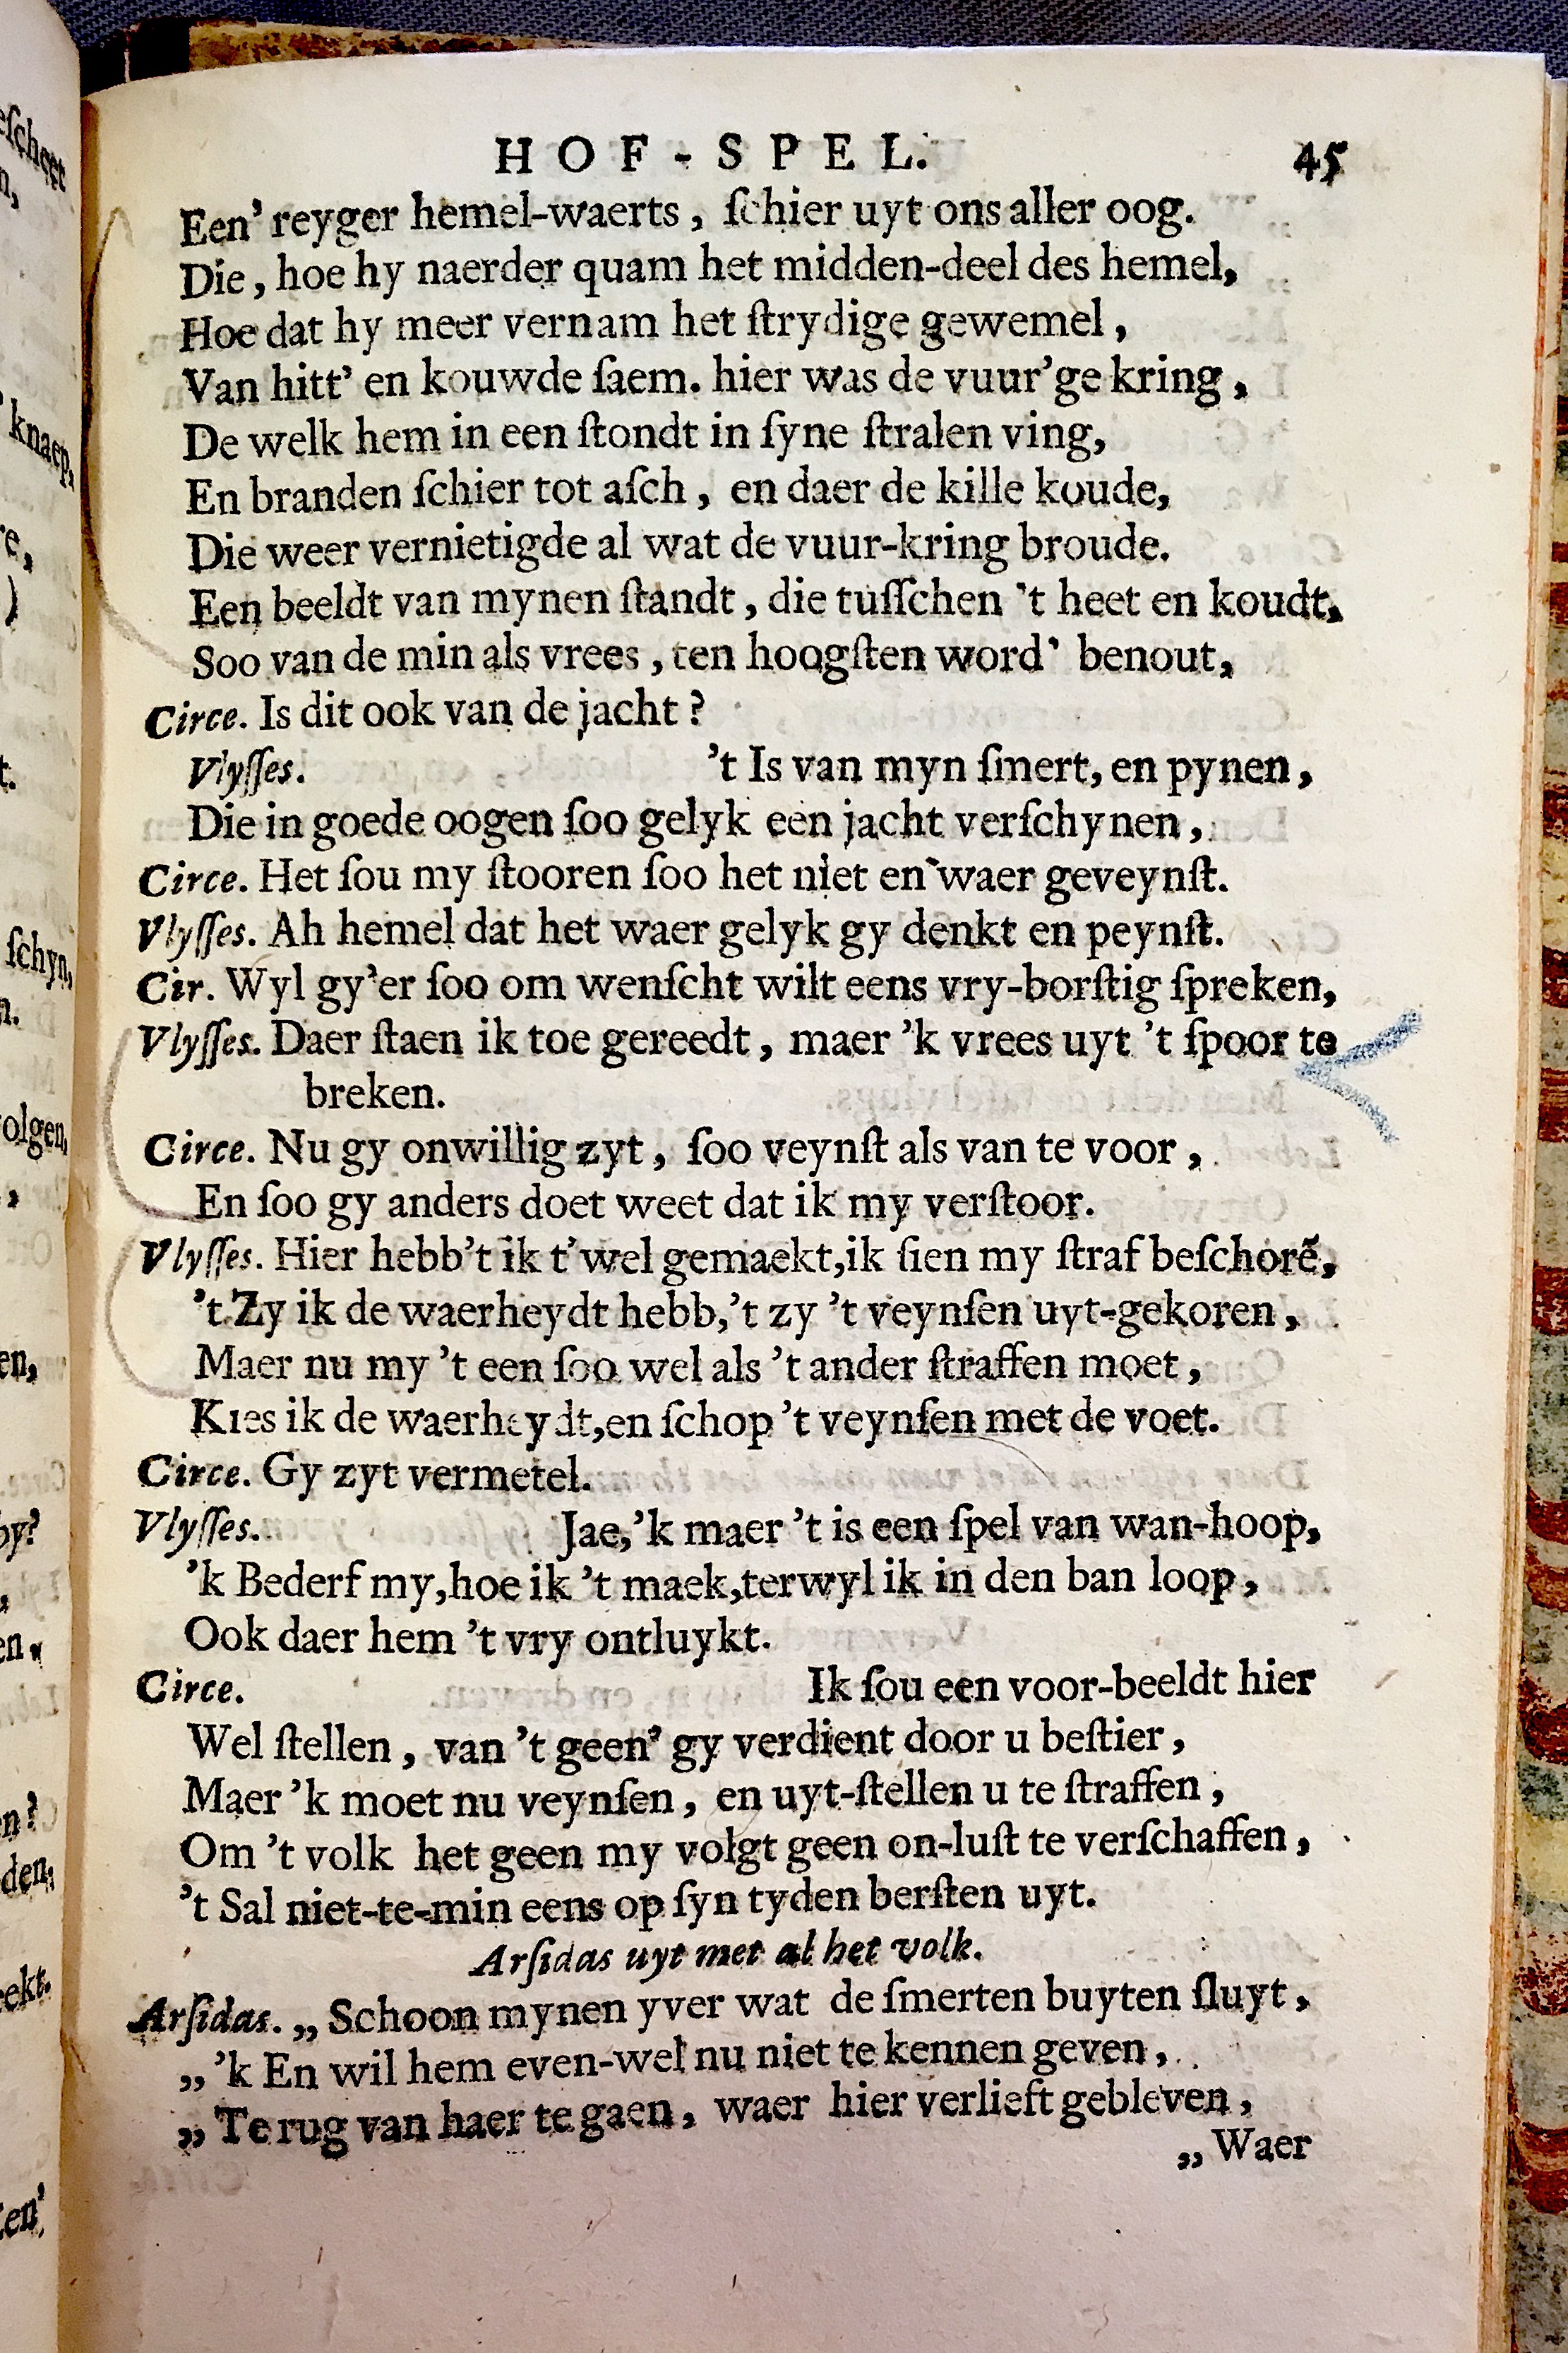 HOF-SPEL. 45
Een' reyger hemel-waerts, ſchier uyt ons aller oog.
Die, hoe hy naerder quam het midden-deel des hemel,
Hoe dat hy meer vernam het ſtrydige gewemel,
Van hitt' en kouwde ſaem. hier was de vuur'ge kring,
De welk hem in een ſtondt in ſyne ſtralen ving,
En branden ſchier tot aſch, en daer de kille koude,
Die weer vernietigde al wat de vuur-kring broude.
Een beeldt van mynen ſtandt, die tuſſchen 't heet en koudt,
Soo van de min als vrees, ten hoogſten word' benout,
Circe. Is dit ook van de jacht?
Vlyſſes. 't Is van myn ſmert, en pynen,
Die in goede oogen ſoo gelyk een jacht verſchynen,
Circe. Het ſou my ſtooren ſoo het niet en waer geveynſt.
Vlyſſes. Ah hemel dat het waer gelyk gy denkt en peynſt.
Cir. Wyl gy'er ſoo om wenſcht wilt eens vry-borſtig ſpreken,
Vlyſſes. Daer ſtaen ik toe gereedt, maer 'k vrees uyt 't ſpoor te
breken.
Circe. Nu gy onwillig zyt, ſoo veynſt als van te voor,
En ſoo gy anders doet weet dat ik my verſtoor.
Vlyſſes. Hier hebb't ik t'wel gemaekt, ik ſien my ſtraf beſchorẽ,
't Zy ik de waerheydt hebb, 't zy 't veynſen uyt-gekoren,
Maer nu my 't een ſoo wel als 't ander ſtraffen moet,
Kies ik de waerheydt, en ſchop 't veynſen met de voet.
Circe. Gy zyt vermetel.
Vlyſſes. Jae, 'k maer 't is een ſpel van wan-hoop,
'k Bederf my, hoe ik 't maek, terwyl ik in den ban loop,
Ook daer hem 't vry ontluykt.
Circe. Ik ſou een voor-beeldt hier
Wel ſtellen, van 't geen' gy verdient door u beſtier,
Maer 'k moet nu veynſen, en uyt-ſtellen u te ſtraffen,
Om 't volk het geen my volgt geen on-luſt te verſchaffen,
't Sal niet-te-min eens op ſyn tyden berſten uyt.
Arſidas uyt met al het volk.
Arſidas. „ Schoon mynen yver wat de ſmerten buyten ſluyt,
„ 'k En wil hem even-wel nu niet te kennen geven,
„ Te rug van haer te gaen, waer hier verlieft gebleven,
„ Waer